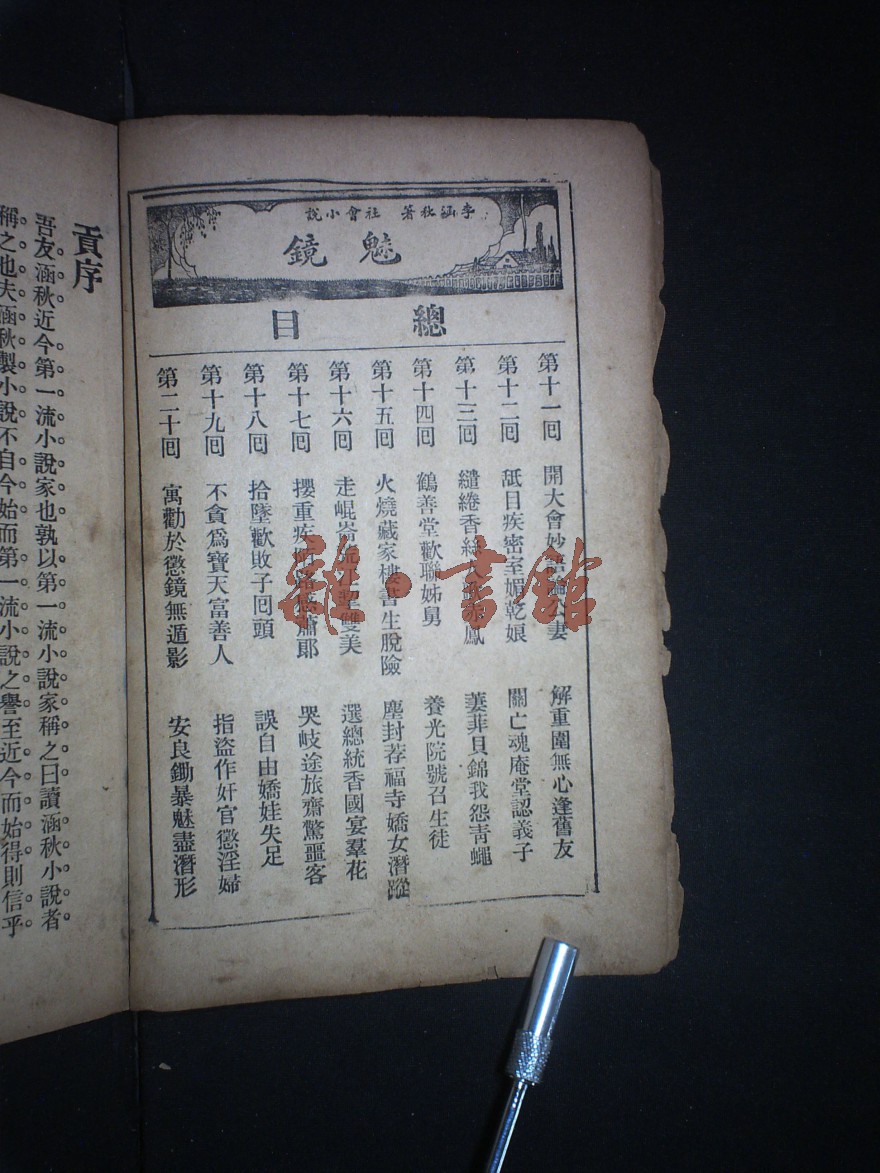 李涵秋著 社會小說
魅鏡
總目
第十一回 開大會妙語論公妻 解重圍無心逢舊友
第十二回 舐目疾密室媚乾娘 關亡魂庵堂認義子
第十三回 繾綣香絲 鳳 萋菲貝錦我怨青蠅
第十四回 鶴善堂歡聯姊舅 養光院號召生徒
第十五回 火燒藏家樓書生脫險 塵封荐福寺嬌女潛蹤
第十六回 走崐崙 雙美 選總統香國宴羣花
第十七回 攖重疾 蕭郎 哭岐途旅齋驚噩客
第十八回 拾墜歡敗子回頭 誤自由嬌娃失足
第十九回 不貪爲寶天富善人 指盜作奸官懲淫婦
第二十回 寓勸於懲鏡無遁影 安良鋤暴魅盡潛形
貢序
吾友涵秋近今第一流小說家也孰以第一流小說家稱之曰讀涵秋小說者
稱之也夫涵秋製小說不自今始而第一流小說之譽至近今而始得則信乎
雜·書館